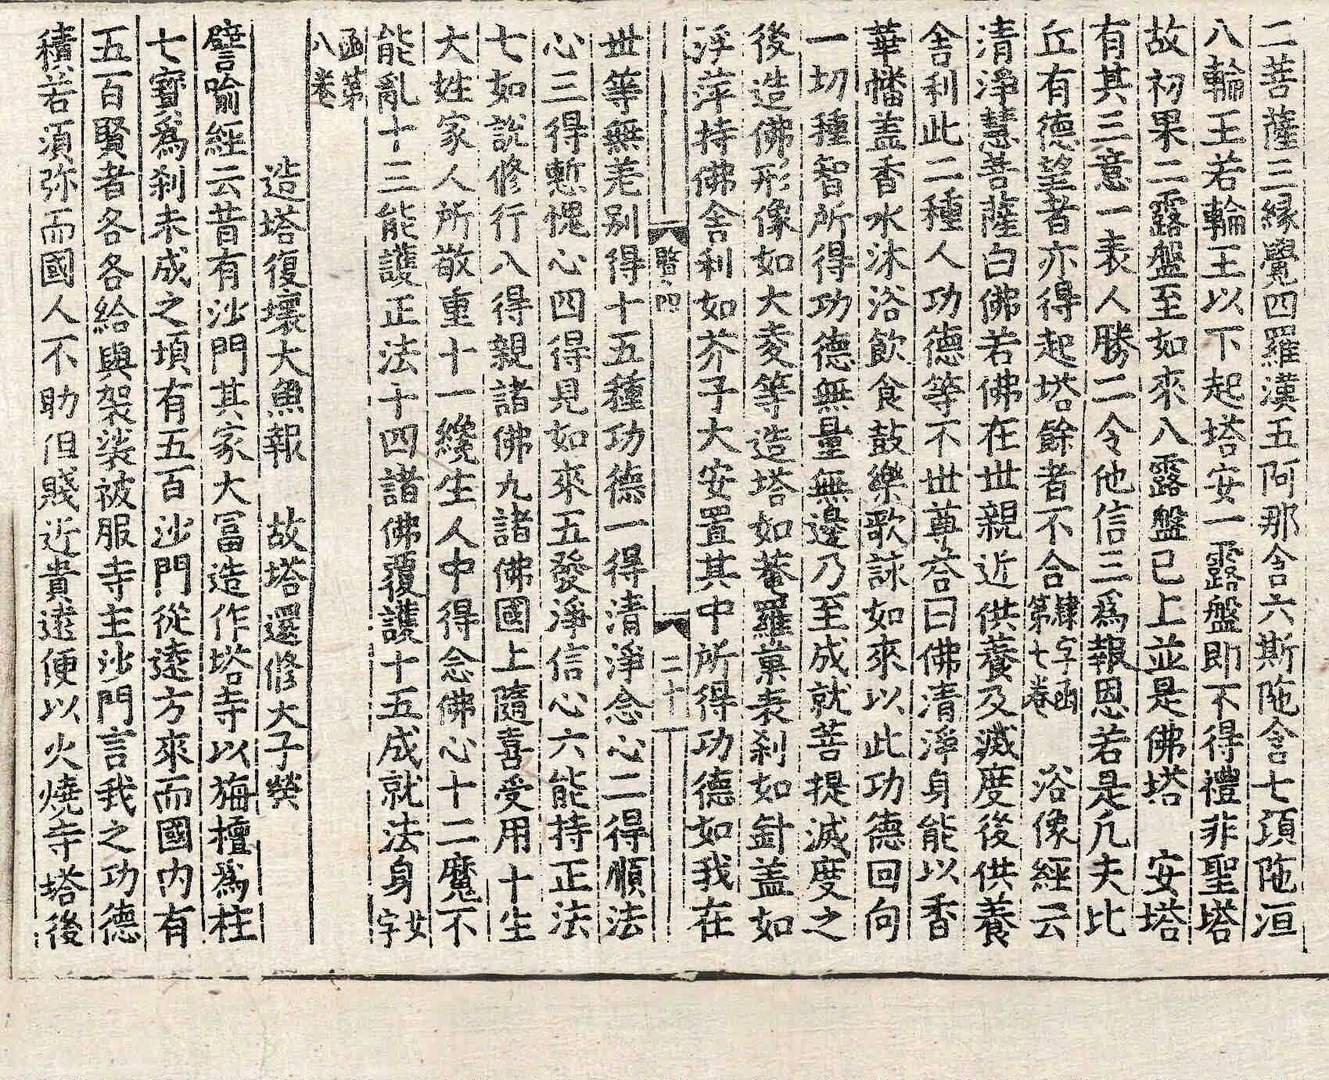 二菩薩三縁覺四羅漢五阿那含六斯陁含七湏陁洹
八輪王若輪王以下起塔安一露盤即不得禮非聖塔
故初果二露盤至如來八露盤已上並是佛塔　安塔
有其三意一表人勝二令他信三為報恩若是凢夫比
丘有德望者亦得起塔餘者不合肆字函第七卷　浴像經云
清淨慧菩薩白佛若佛在世親近供養及滅度後供養
舍利此二種人功德等不世尊荅曰佛清淨身能以香
華幡盖香水沐浴飲食鼓樂歌詠如來以此功德回向
一切種智所得功德無量無邊乃至成就菩提滅度之
後造佛形像如大麦等造塔如菴羅菓表刹如針盖如
浮萍持佛舍利如芥子大安置其中所得功德如我在
賢四　二十
世等無差別得十五種功德一得清淨念心二得順法
心三得慙愧心四得見如來五發淨信心六能持正法
七如說修行八得親諸佛九諸佛國上隨喜受用十生
大姓家人所敬重十一纔生人中得念佛心十二魔不
能亂十三能護正法十四諸佛覆護十五成就法身女字
函第八卷
造塔復壞大魚報　故塔還修大子𤇾
譬喻經云昔有沙門其家大冨造作塔寺以栴檀為柱
七寶為刹未成之頃有五百沙門從逺方來而國內有
五百賢者各各給與袈裟被服寺主沙門言我之功德
積若須弥而國人不助但賤近貴逺便以火燒寺塔後